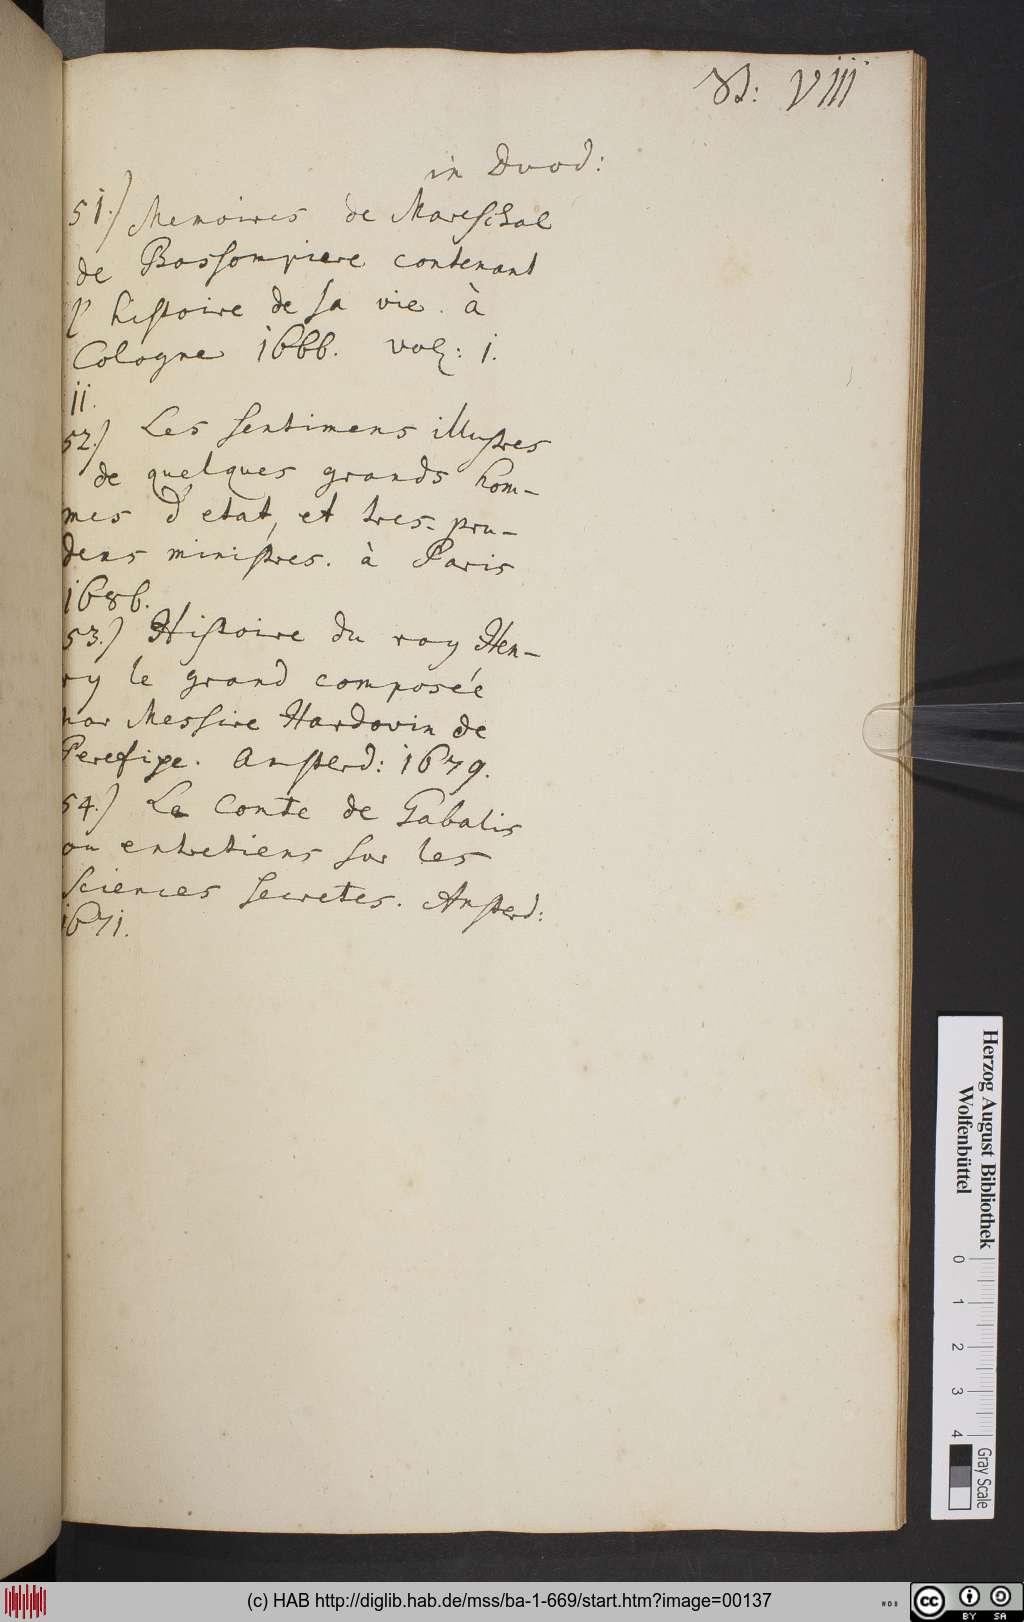 VIII
in Duod:
51.) Memoires de Mareschal
de Bassompiere contenant
l' histoire de sa vie. à
Cologne 1666. vol: 1.
11.
52.) Les sentimens illustres
de quelques grands hom-
mes d' etat, et tres-pru-
dens ministres. à Paris
1686.
53.) Histoire du roy Hen-
ry le grand composée
par Messire Hardovin de
Perefixe. Amsterd: 1679.
54.) Le Comte de Gabalis
ou entretiens sur les
sciences secretes. Amsterd:
1671.
Herzog August Bibliothek
Wolfenbüttel
0 1 2 3 4
Gray Scale
(c) HAB http://diglib.hab.de/mss/ba-1-669/start.htm?image=00137
cc BY SA